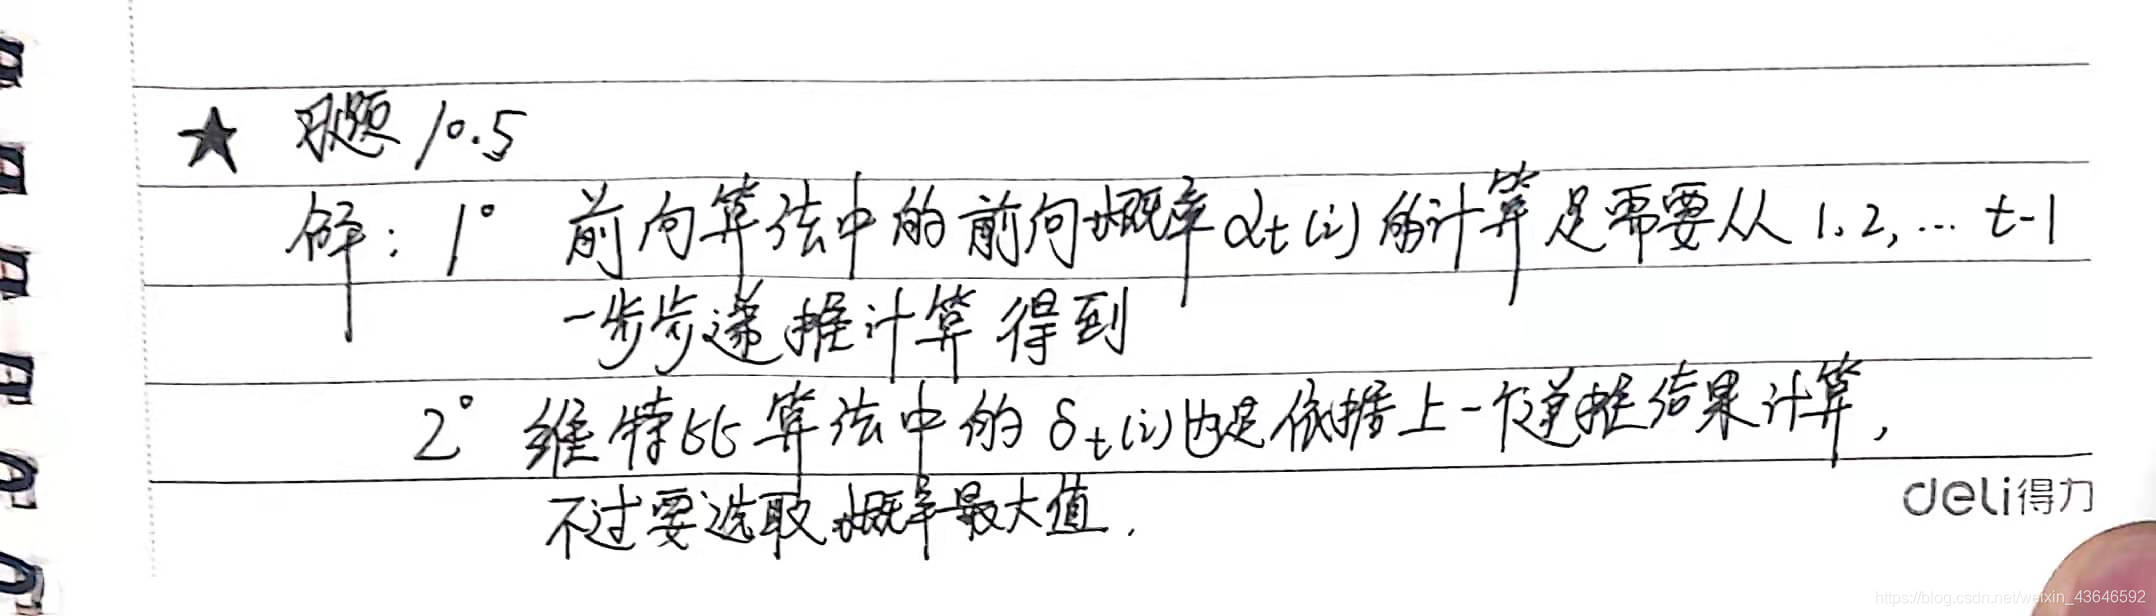 ★ 习题 10.5
解：1° 前向算法中的前向概率αt(i)的计算是需要从 1.2,… t-1
一步步递推计算得到
2° 维特比算法中的 δt(i)也是依据上一个递推结果计算,
不过要选取概率最大值.
deli得力
https://blog.csdn.net/weixin_43646592